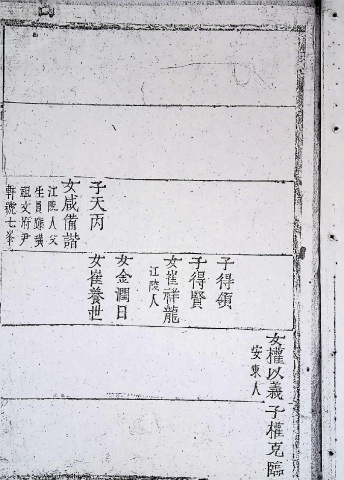 子天丙
女咸備諧
江陵人父
生員璜
祖父府尹
軒號七峯
子得領
子得賢
女崔祥龍
江陵人
女金潤日
女崔養世
女權以義子權克臨
安東人